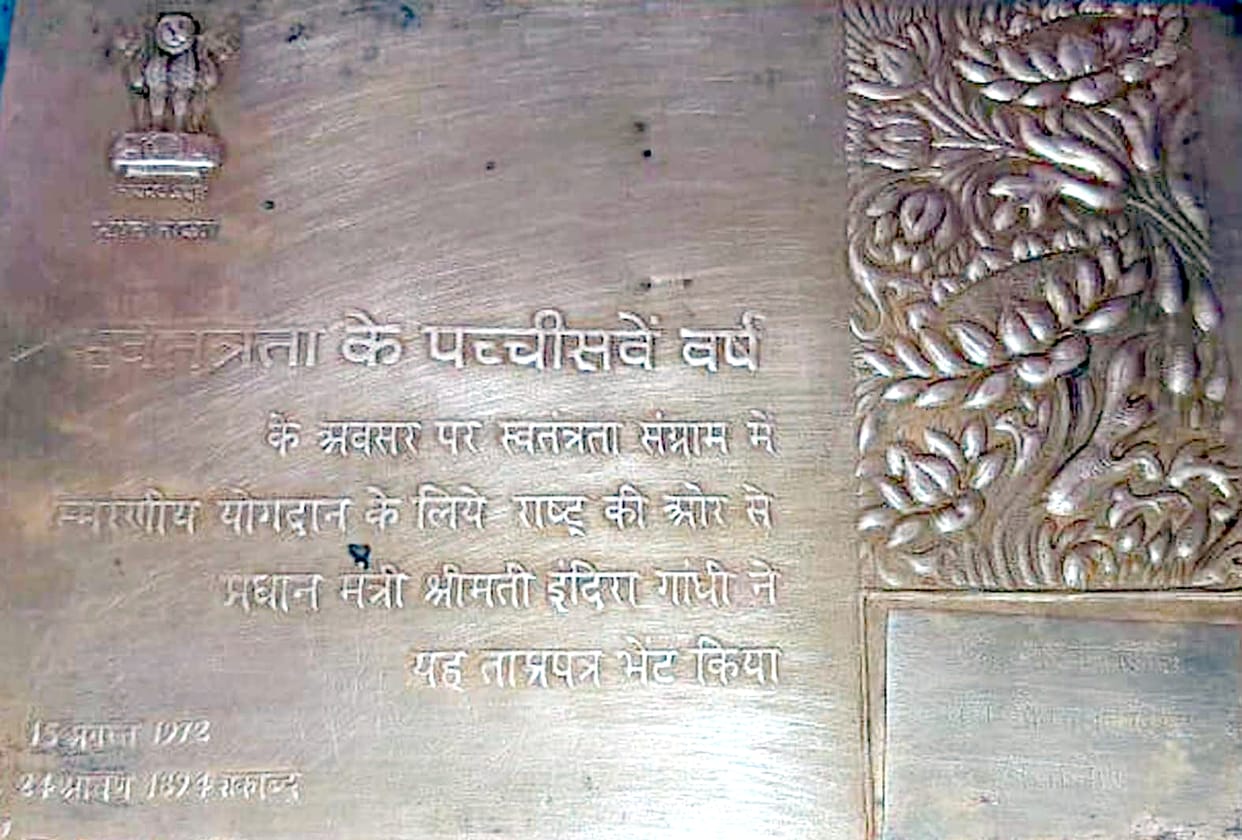 सत्यमेव जयते
स्वतंत्रता के पच्चीसवें वर्ष
के अवसर पर स्वतंत्रता संग्राम में
स्मरणीय योगदान के लिये राष्ट्र की ओर से
प्रधान मंत्री श्रीमती इंदिरा गांधी ने
यह ताम्रपत्र भेंट किया
15 अगस्त 1972
24 श्रावण 1894 शकाब्द